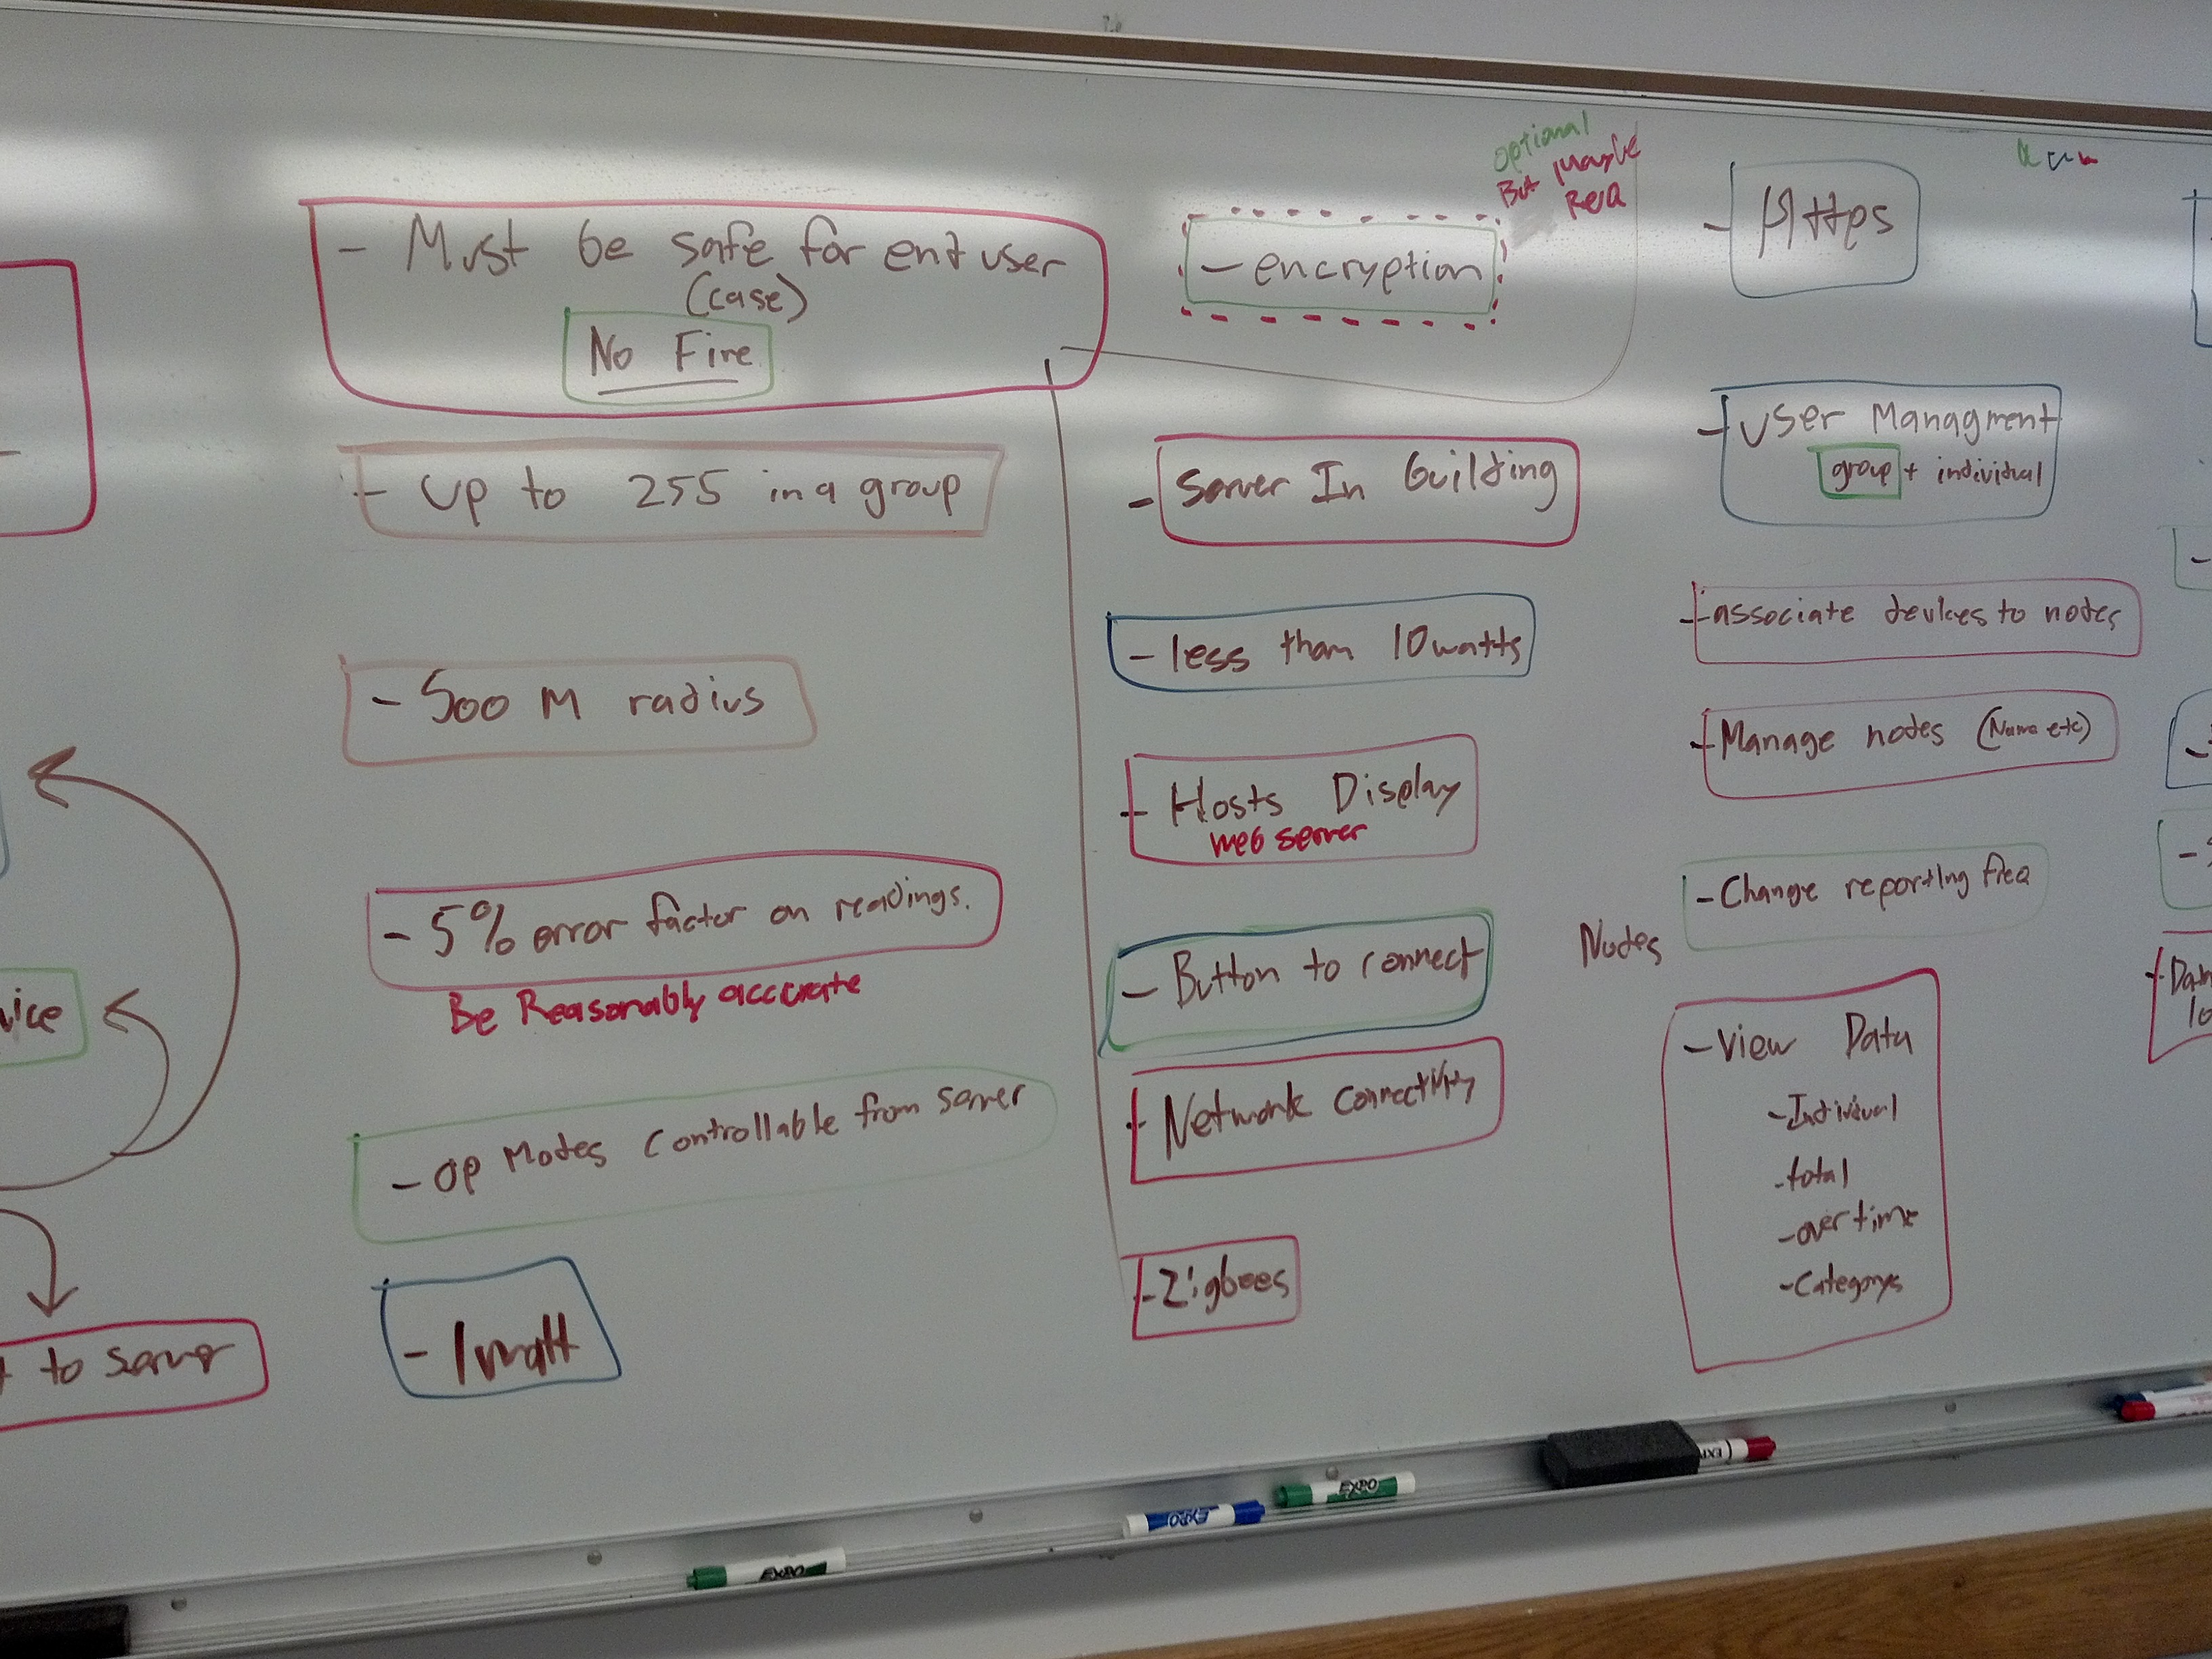 - Must be safe for ent user
(case)
No Fire
- Up to 255 in a group
- 500 M radius
- 5% error factor on readings.
Be Reasonably accurate
- OP Modes Controllable from server
- 1 watt
to server
optional
But maybe
Req
- encryption
- Server In building
- less than 10 watts
- Hosts Display
web server
- Button to connect
- Network Connectivity
- Zigbees
- Https
- User Managment
group + individual
- associate devices to nodes
- Manage nodes (Name etc)
- Change reporting freq
Nodes
- View Data
- Individual
- total
- over time
- Categorys
EXPO
EXPO
EXPO